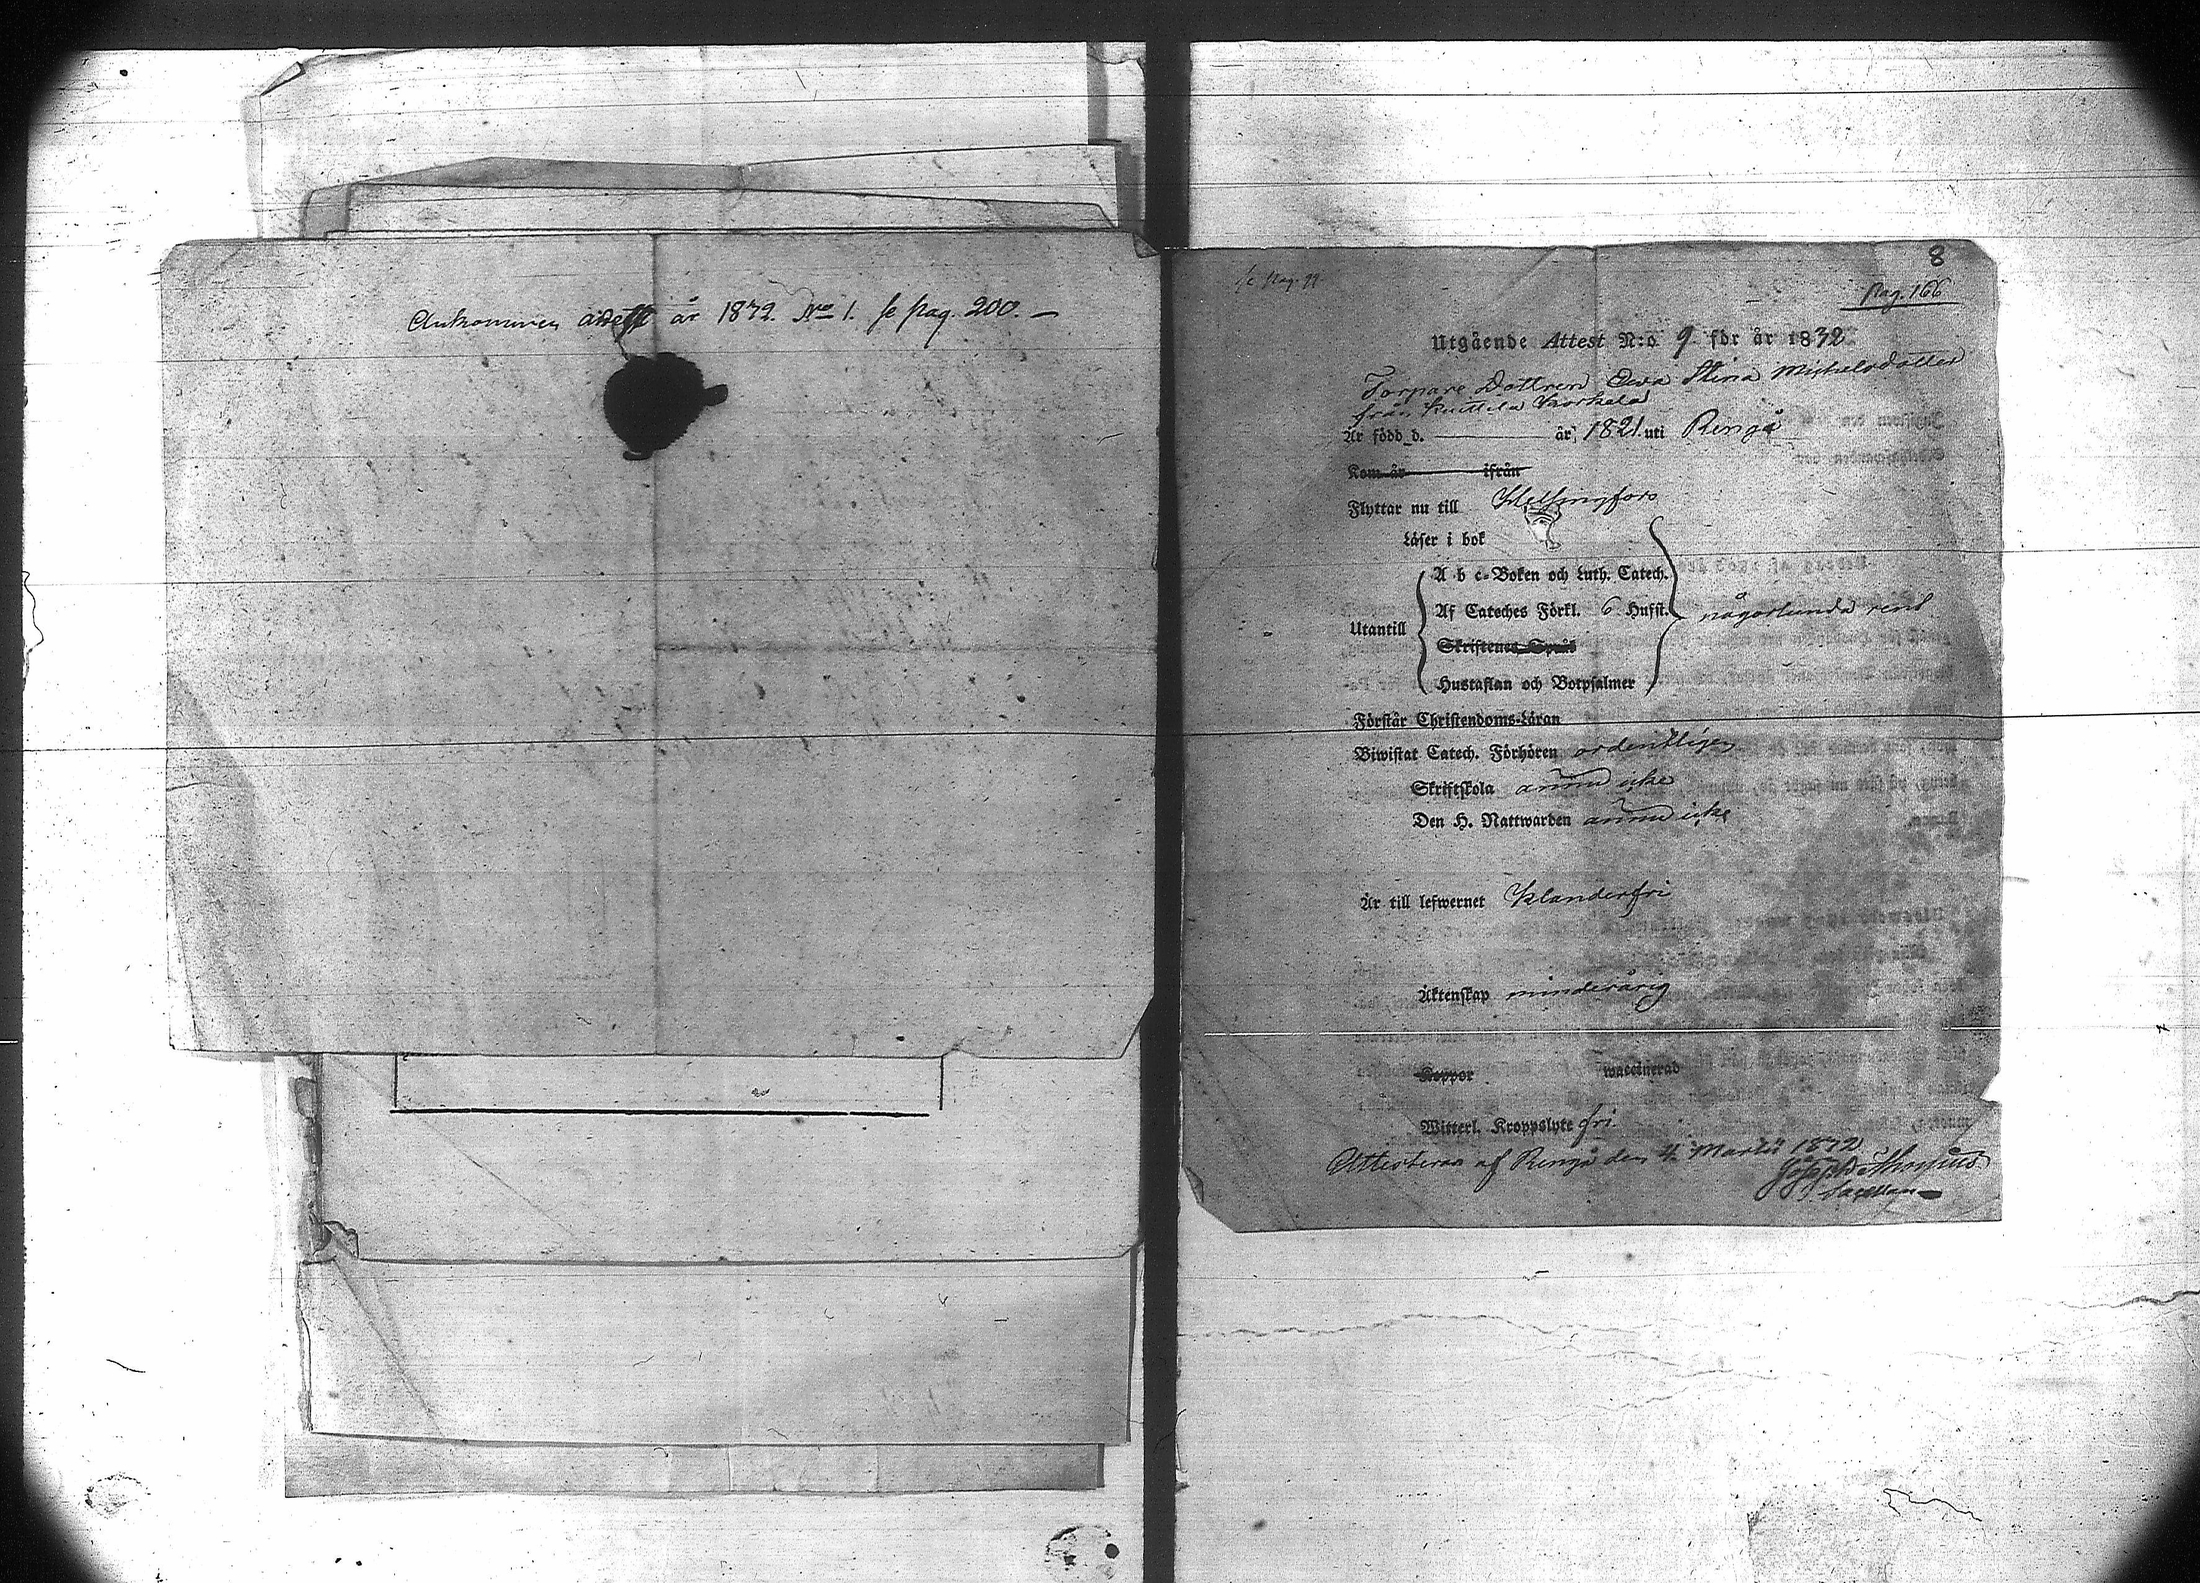 Ankommen attest år 1832. No 1. se pag. 200. —
se Pag. 99
8
Pag. 166
Utgående Attest N:o 9 för år 1832.
Torpare Dottren Ewa Stina Michelsdotter
från
Är född d. år 1821 uti Rengå
Kom år ifrån
Flyttar nu till Helsingfors
Läser i bok
A b c-Boken och Luth. Catech.
Af Cateches Förkl. 6 Hufst. någorlunda rent
Utantill
Skriftenes Språk
Hustaflan och Botpsalmer
Förstår Christendoms-Läran
Biwistat Catech. Förhören ordentligen
Skriftskola ännu icke
Den H. Nattwarden ännu icke
Är till lefwernet Klanderfri
Äktenskap minderårig
Koppor waccinerad
Witterl. Kroppslyte fri
Attesteras af Rengå den 4 Martii 1832
Sacellan